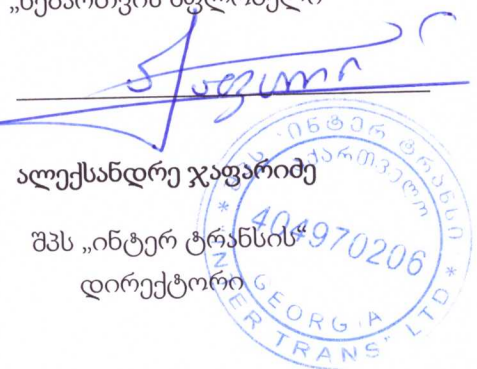 ალექსანდრე ჯაფარიძე
შპს „ინტერ ტრანსის“
დირექტორი
შპს "ინტერ ტრანსი"
საქართველო
404970206
GEORGIA
"INTER TRANS" LTD